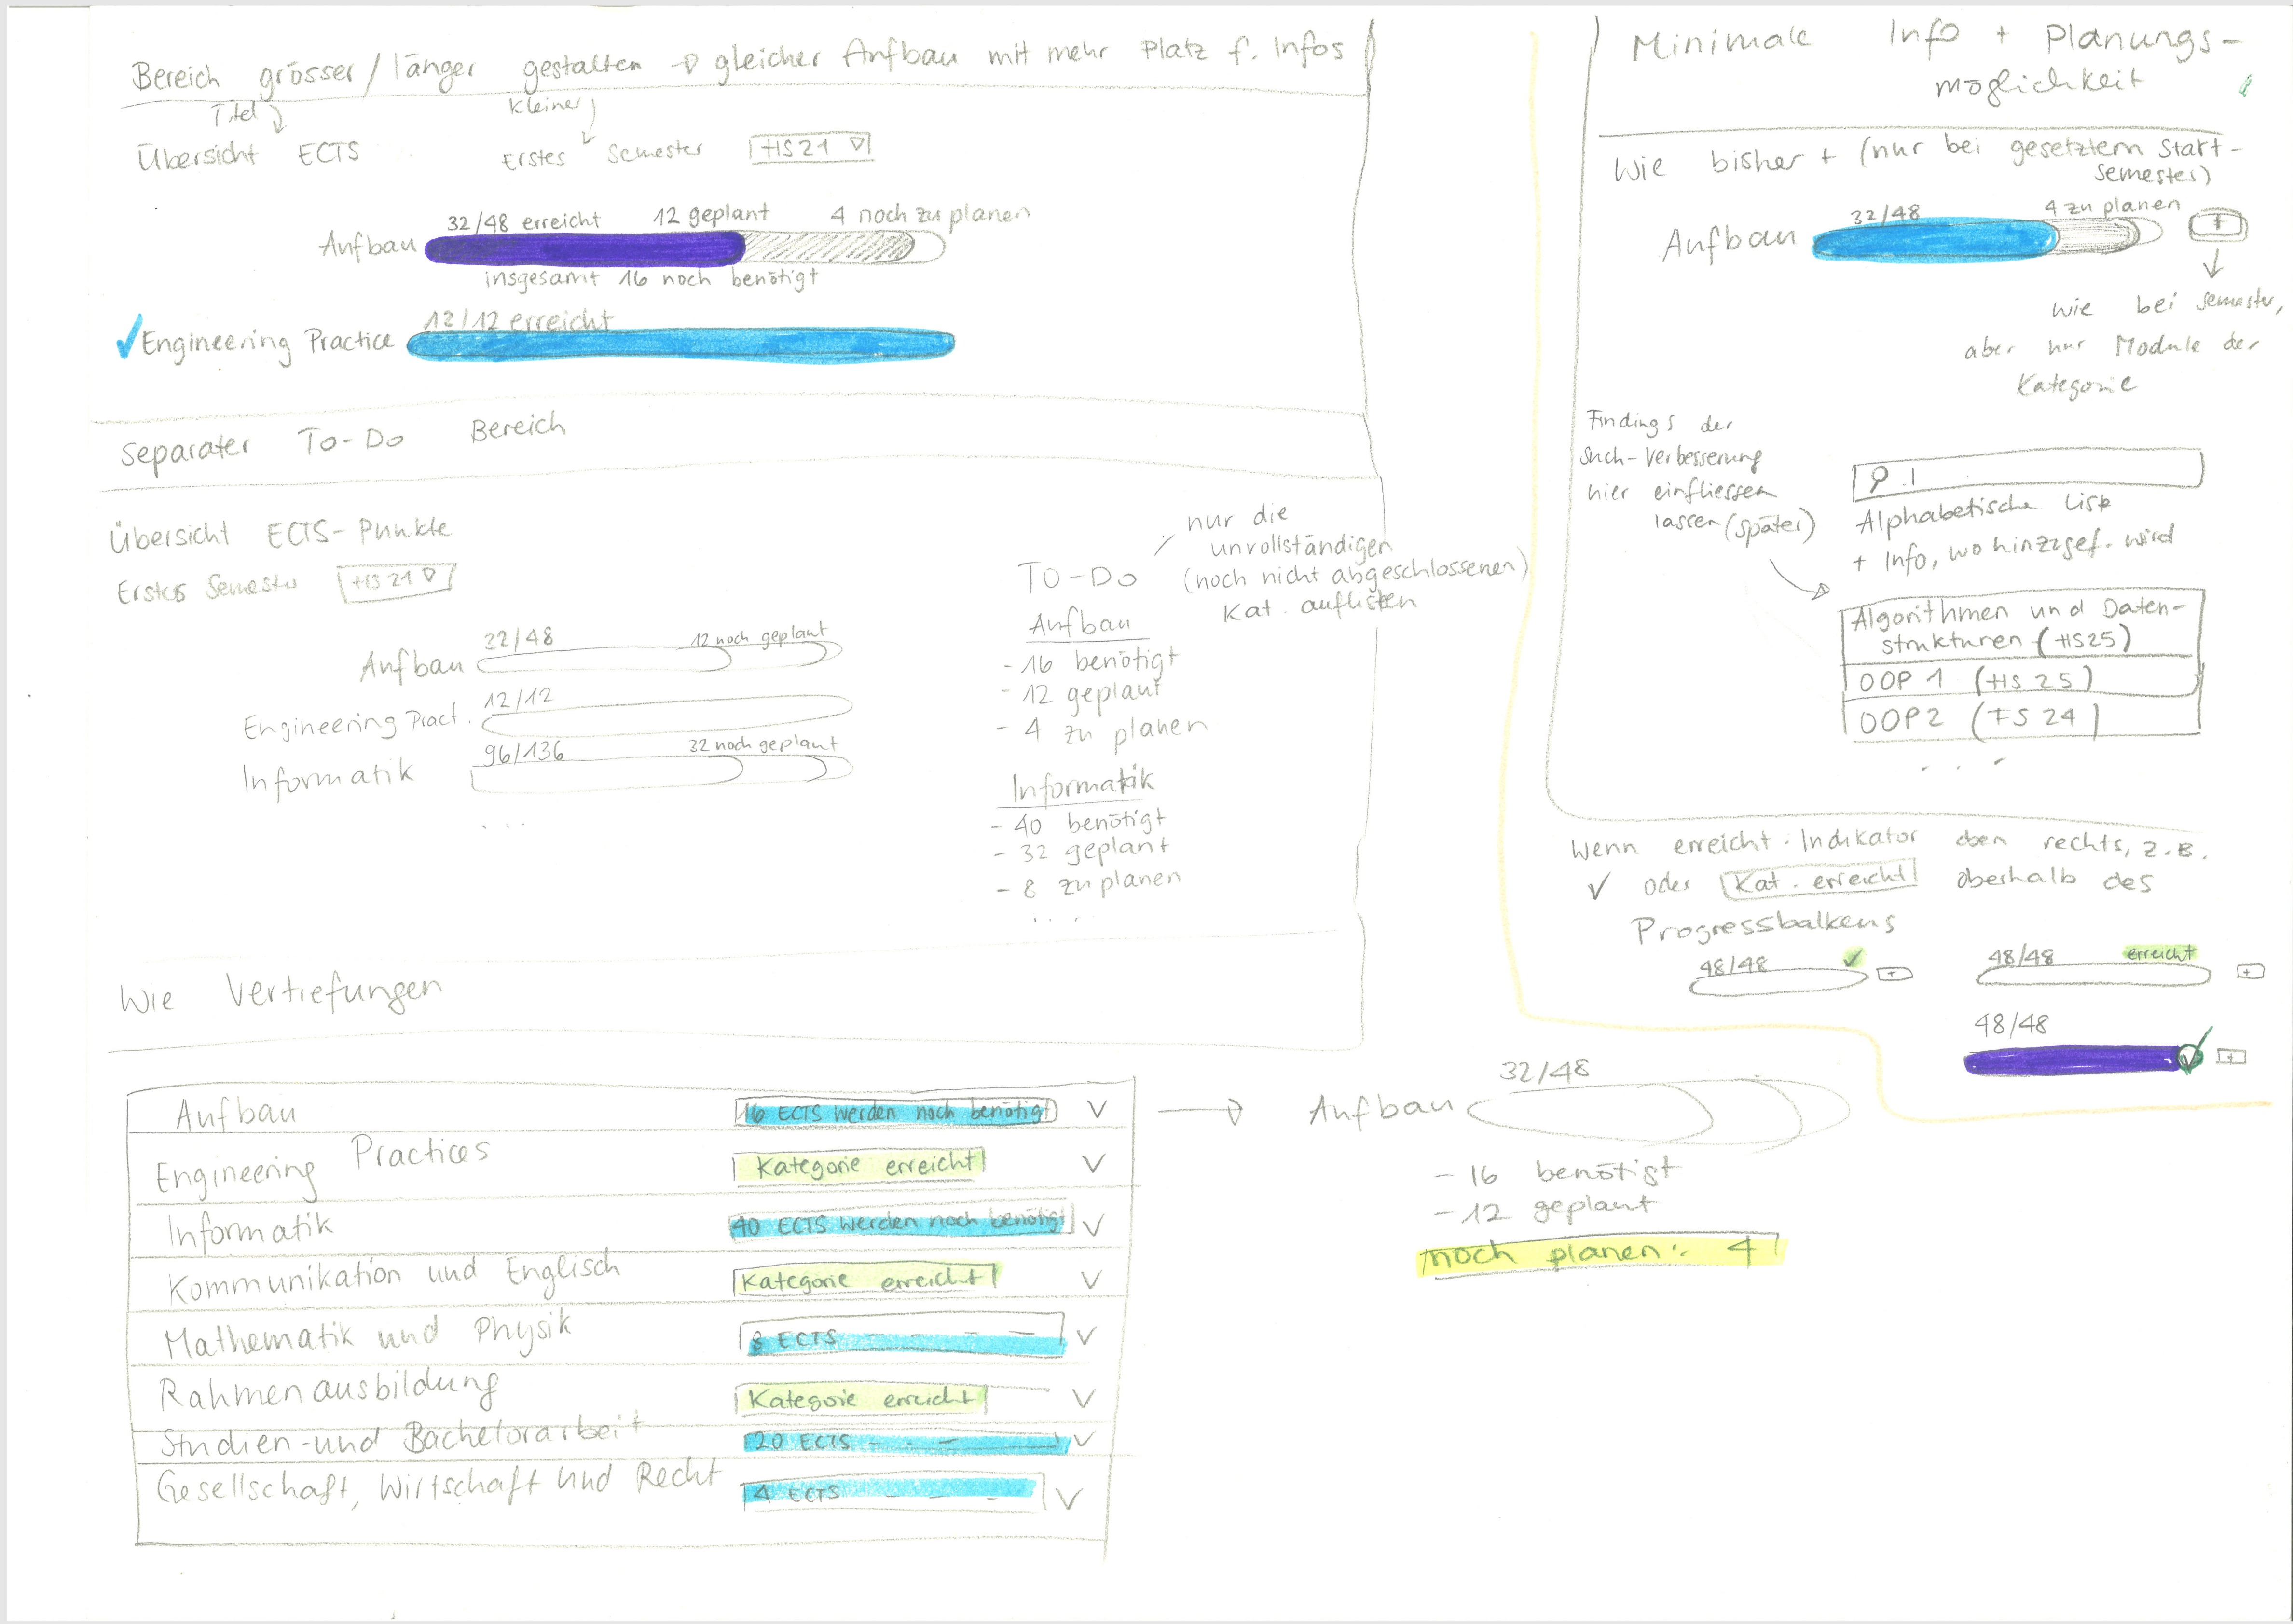 Bereich grösser/länger gestalten → gleicher Aufbau mit mehr Platz f. Infos
Titel
kleiner
Übersicht ECTS
Erstes Semester HS21
32/48 erreicht 12 geplant 4 noch zu planen
Aufbau
insgesamt 16 noch benötigt
12/12 erreicht
✓ Engineering Practice
Separater To-Do Bereich
Übersicht ECTS-Punkte
Erstes Semester HS21
32/48 12 noch geplant
Aufbau
12/12
Engineering Pract.
96/136 32 noch geplant
Informatik
...
nur die
unvollständigen
(noch nicht abgeschlossenen)
Kat. auflisten
TO-DO
Aufbau
- 16 benötigt
- 12 geplant
- 4 zu planen
Informatik
- 40 benötigt
- 32 geplant
- 8 zu planen
....
Wie Vertiefungen
Aufbau 16 ECTS werden noch benötigt
Engineering Practices Kategorie erreicht
Informatik 40 ECTS werden noch benötigt
Kommunikation und Englisch Kategorie erreicht
Mathematik und Physik 8 ECTS
Rahmenausbildung Kategorie erreicht
Studien- und Bachelorarbeit 20 ECTS
Gesellschaft, Wirtschaft und Recht 4 ECTS
32/48
Aufbau
- 16 benötigt
- 12 geplant
noch planen: 4
Minimale Info + Planungs-
möglichkeit
Wie bisher + (nur bei gesetztem Start-
semester)
32/48 4 zu planen
Aufbau +
wie bei Semester,
aber nur Module der
Kategorie
Findings der
Such-Verbesserung
hier einfliessen
lassen (später)
Alphabetische Liste
+ Info, wo hinzugef. wird
Algorithmen und Daten-
strukturen (HS25)
OOP 1 (HS 25)
OOP2 (FS 24)
...
Wenn erreicht. Indikator oben rechts, z.B.
✓ oder Kat. erreicht oberhalb des
Progressbalkens
48/48 ✓ +
48/48 erreicht +
48/48
✓ +